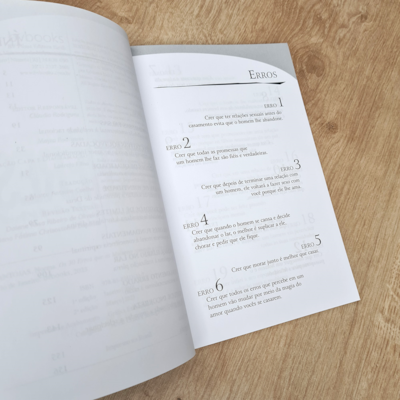 ERROS
ERRO 1
Crer que ter relações sexuais antes do
casamento evita que o homem lhe abandone.
ERRO 2
Crer que todas as promessas que
um homem lhe faz são fiéis e verdadeiras.
ERRO 3
Crer que depois de terminar uma relação com
um homem, ele voltará a fazer sexo com
você porque ele lhe ama.
ERRO 4
Crer que quando o homem se cansa e decide
abandonar o lar, o melhor é suplicar a ele,
chorar e pedir que ele fique.
ERRO 5
Crer que morar junto é melhor que casar.
ERRO 6
Crer que todos os erros que percebe em um
homem vão mudar por meio da magia do
amor quando vocês se casarem.